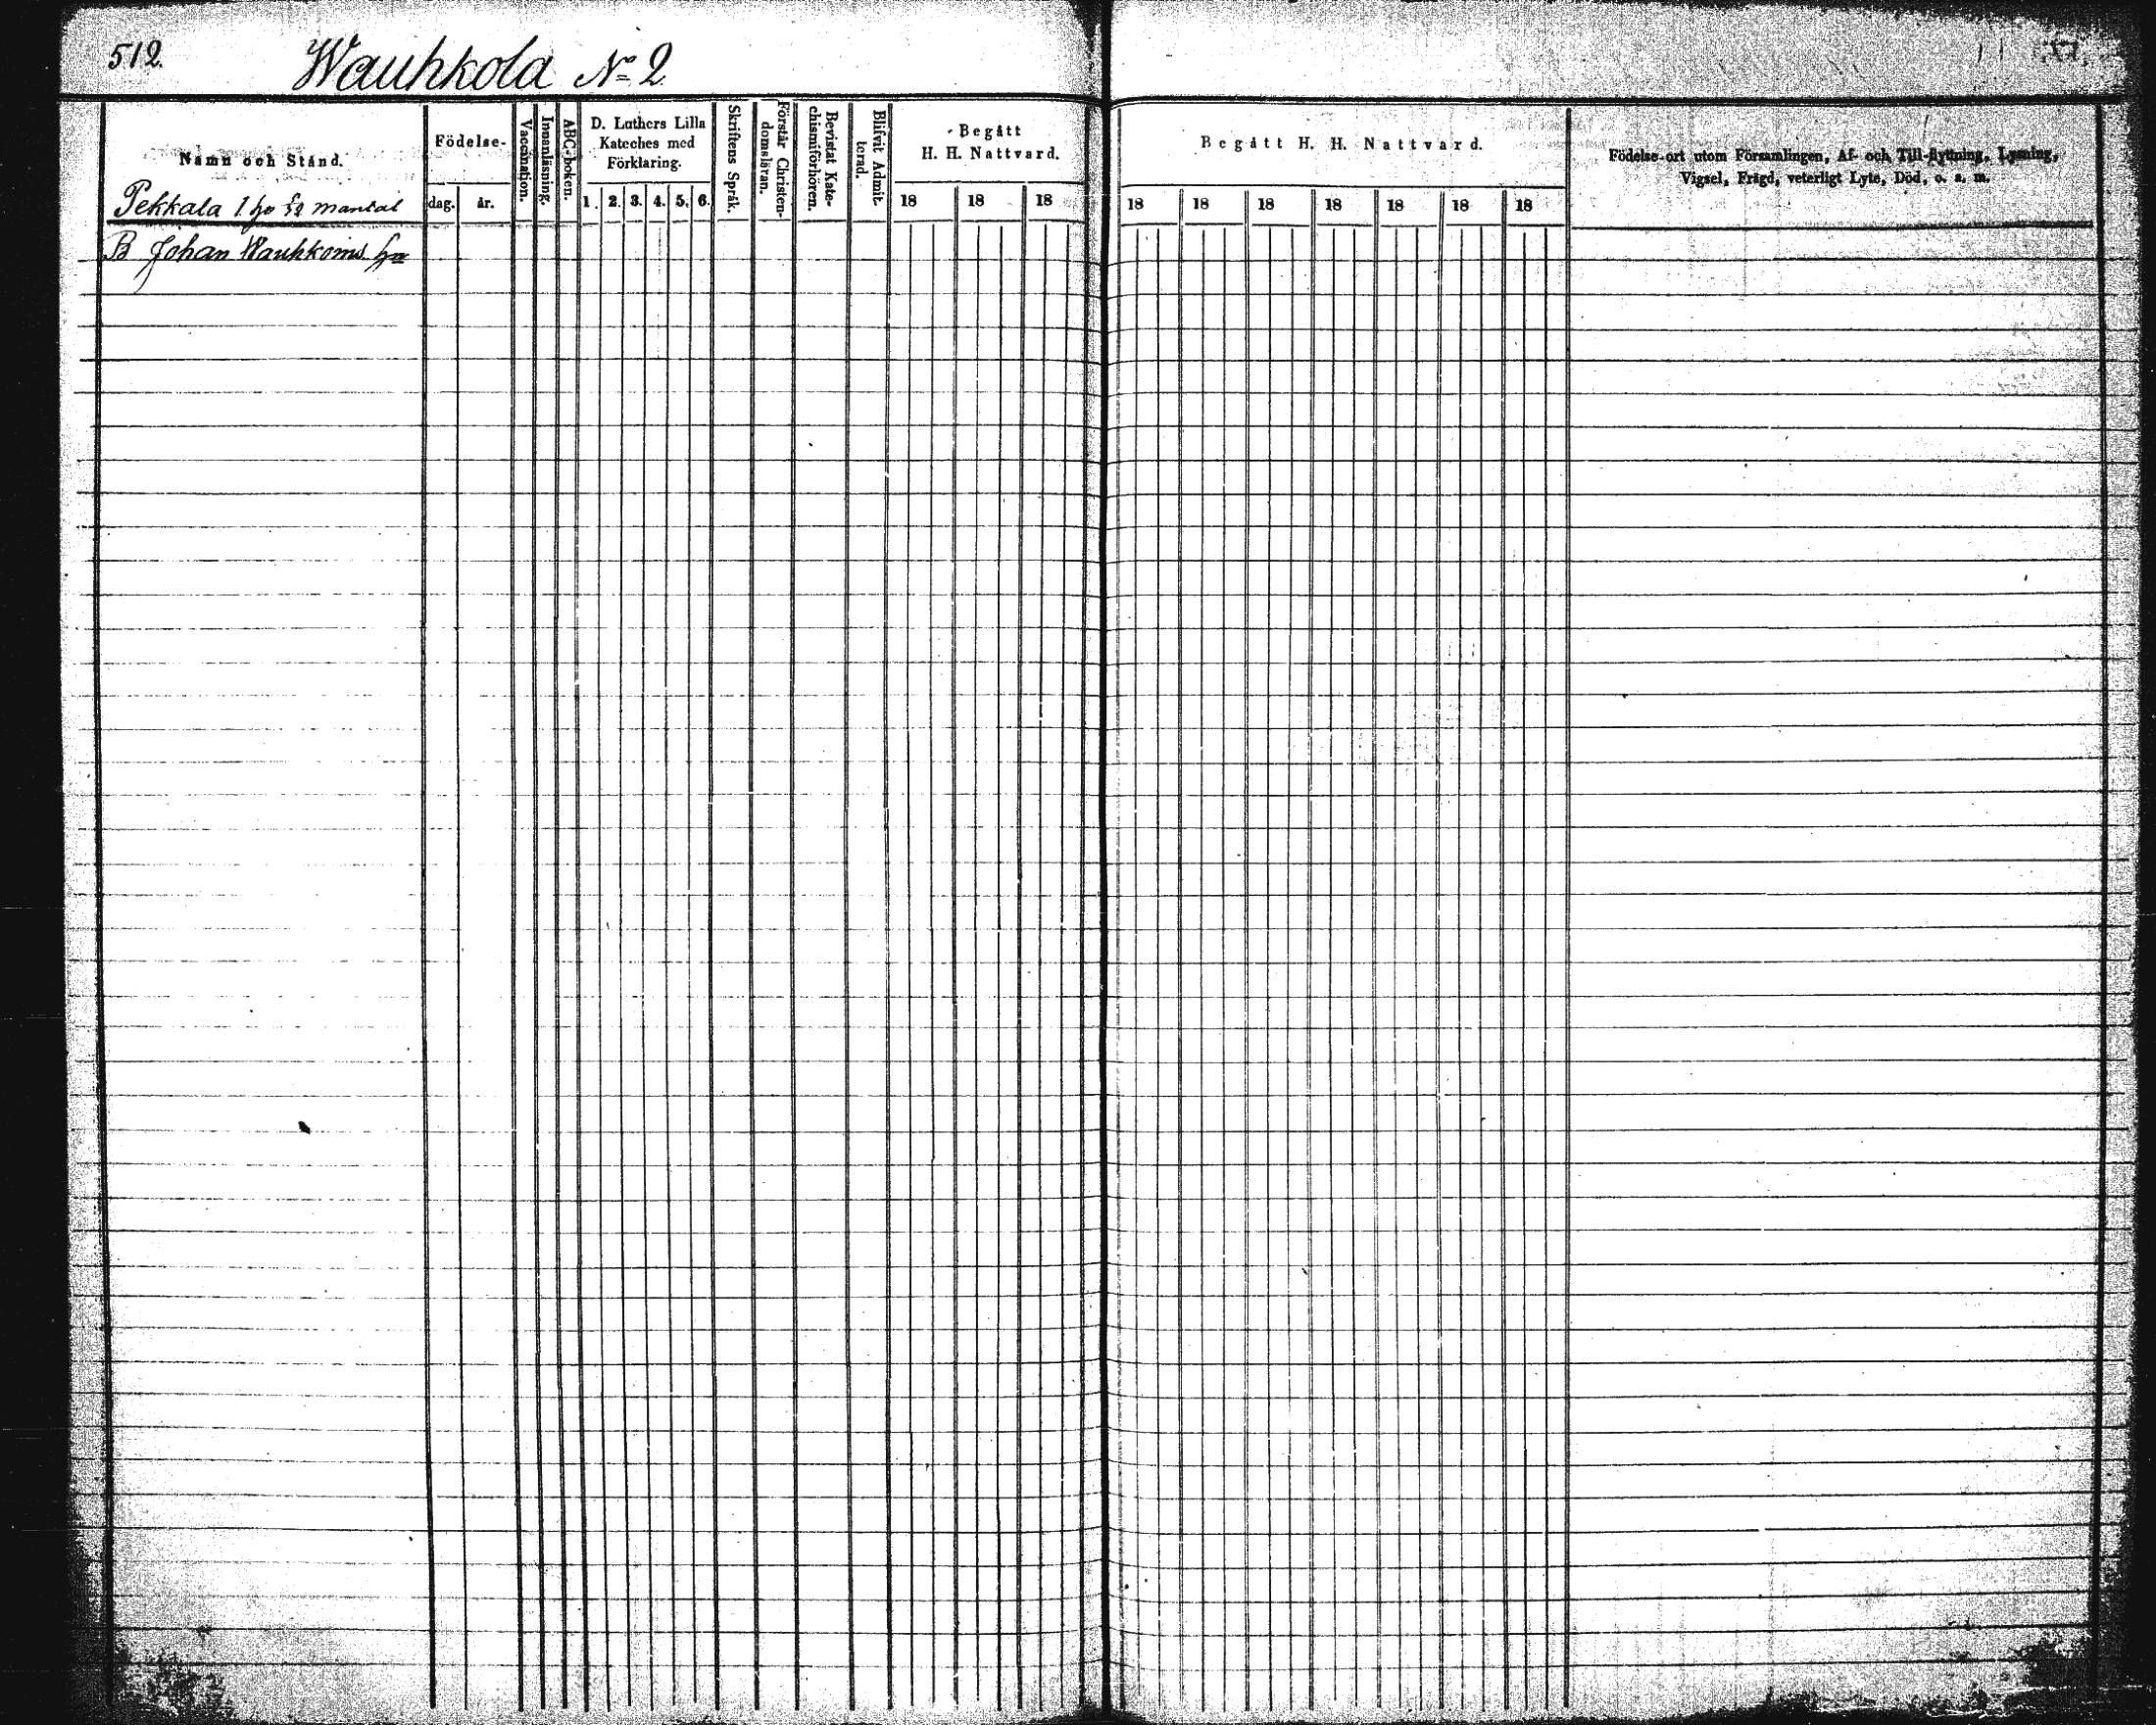 512.
Wauhkola No 2
Namn och Stånd.
Pekkala 1 mantal
Födelse-
dag.
år.
Vaccination.
Innanläsning.
ABC-boken.
D. Luthers Lilla
Kateches med
Förklaring.
1. 2. 3. 4. 5. 6.
Skriftens Språk.
Förstår Christen-
domsläran.
Bevistat Kate-
chismiförhören.
Blifvit Admit-
terad.
Begått
H. H. Nattvard.
18 18 18
Begått H. H. Nattvard.
18 18 18 18 18 18 18
Födelse-ort utom Församlingen, Af- och Till-flyttning, Lysning,
Vigsel, Frägd, veterligt Lyte, Död, o. s. m.
B Johan